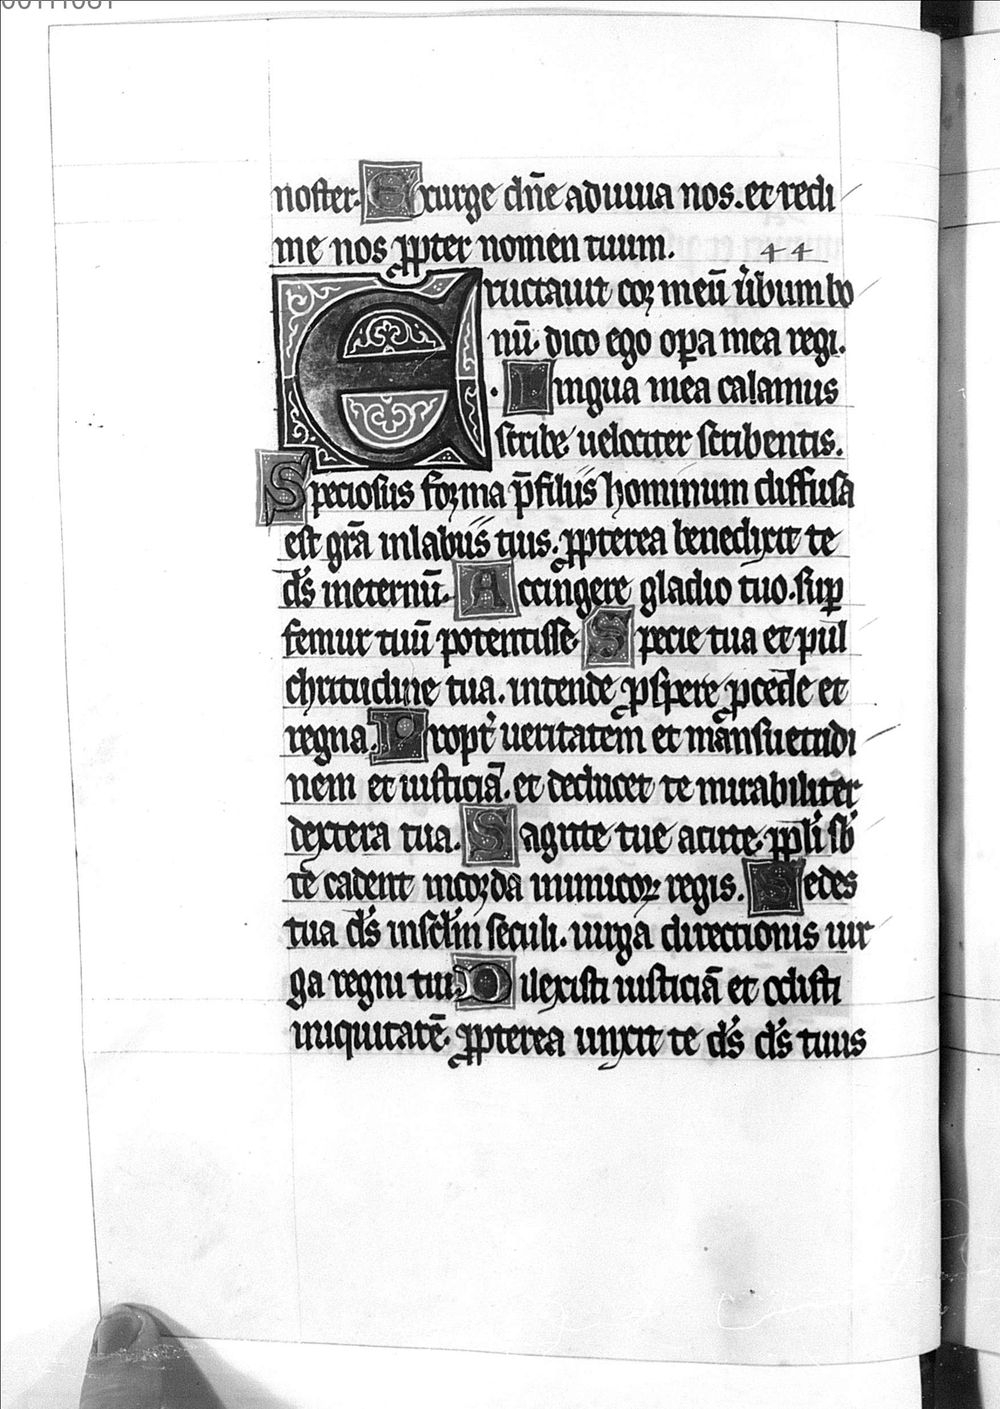 00111081
noster. Exurge dn̄e adiuua nos. et redi
me nos ꝓpter nomen tuum.
44
Eructauit cor meū u̓bum bo
nū. dico ego oꝑa mea regi.
. Lingua mea calamus
scribe uelociter scribentis.
Speciosus forma p̄ filiis hominum diffusa
est gr̄a in labiis tuis. ꝓpterea benedixit te
ds̓ in eternū. Accingere gladio tuo. suꝑ
femur tuū potentisse. Specie tua et pul
chritudine tua. intende ꝓspere ꝓcede et
regna. Propt̓ ueritatem et mansuetudi
nem et iusticiā. et deducet te mirabiliter
dextera tua. Sagitte tue acute. ppl̓i sb̓
te cadent in corda inimicoꝝ regis. Sedes
tua ds̓ in scl̓m seculi. uirga directionis uir
ga regni tui. Dilexisti iusticiā et odisti
iniquitatē. ꝓpterea unxit te ds̓ ds̓ tuus